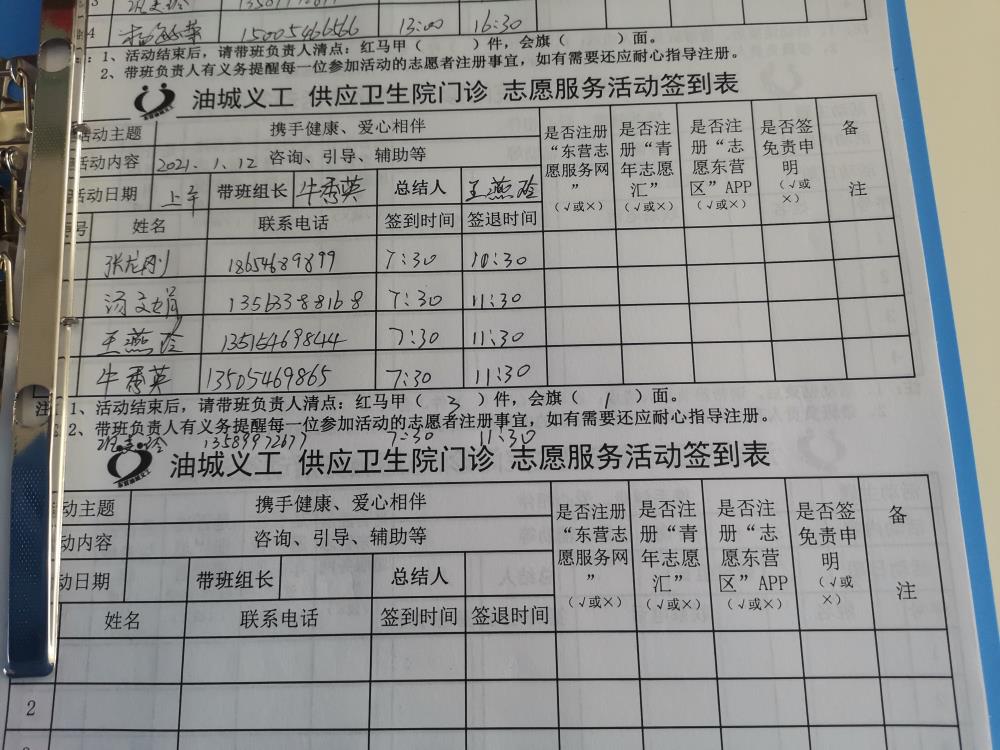 4 15005466566 13:00 16:30
1、活动结束后，请带班负责人清点：红马甲（ ）件，会旗（ ）面。
2、带班负责人有义务提醒每一位参加活动的志愿者注册事宜，如有需要还应耐心指导注册。
油城义工 供应卫生院门诊 志愿服务活动签到表
活动主题 携手健康、爱心相伴 是否注册“东营志愿服务网”（√或×） 是否注册“青年志愿汇”（√或×） 是否注册“志愿东营区”APP（√或×） 是否签免责申明（√或×） 备注
活动内容 2021.1.12 咨询、引导、辅助等
活动日期 上午 带班组长 牛秀英 总结人 王燕玲
号 姓名 联系电话 签到时间 签退时间
张龙刚 18654689899 7:30 10:30
汤文娟 13563388168 7:30 11:30
王燕玲 13515469844 7:30 11:30
牛秀英 13505469865 7:30 11:30
注：1、活动结束后，请带班负责人清点：红马甲（ 3 ）件，会旗（ 1 ）面。
2、带班负责人有义务提醒每一位参加活动的志愿者注册事宜，如有需要还应耐心指导注册。
13589972677 7:30 11:30
油城义工 供应卫生院门诊 志愿服务活动签到表
动主题 携手健康、爱心相伴 是否注册“东营志愿服务网”（√或×） 是否注册“青年志愿汇”（√或×） 是否注册“志愿东营区”APP（√或×） 是否签免责申明（√或×） 备注
动内容 咨询、引导、辅助等
动日期 带班组长 总结人
姓名 联系电话 签到时间 签退时间
2